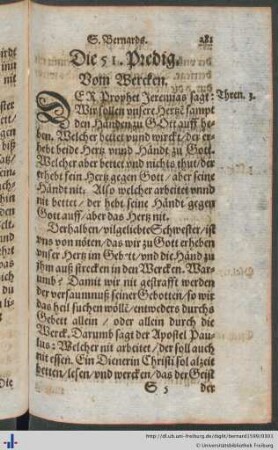 S. Bernards. 281
Die 51. Predig.
Vom Wercken.
DER Prophet Jeremias sagt: Thren. 3.
Wir sollen unsere Hertzẽ sampt
den Händen zu Gott auff he-
ben. Welcher bätet vnnd wirckt / der er-
hebt beide Hertz vnnd Händ zu Gott.
Welcher aber bettet vnd nichts thut / der
erhebt sein Hertz gegen Gott / aber seine
Händt nit. Also welcher arbeitet vnnd
nit bettet / der hebt seine Händt gegen
Gott auff / aber das Hertz nit.
Derhalben / vilgeliebte Schwester / ist
vns von nöten / das wir zu Gott erheben
vnser Hertz im Gebett / vnd die Händ zu
jhm auß strecken in den Wercken. War-
umb? Damit wir nit gestrafft werden
der versaumnuß seiner Gebotten / so wir
das heil suchen wöllẽ / entweders durchs
Gebett allein / oder allein durch die
Werck. Darumb sagt der Apostel Pau-
lus: Welcher nit arbeitet / der soll auch
nit essen. Ein Dienerin Christi sol alzeit
betten / lesen / vnd wercken / das der Geist
S 5 der
Die
http://dl.ub.uni-freiburg.de/diglit/bernard1589/0301
© Universitätsbibliothek Freiburg